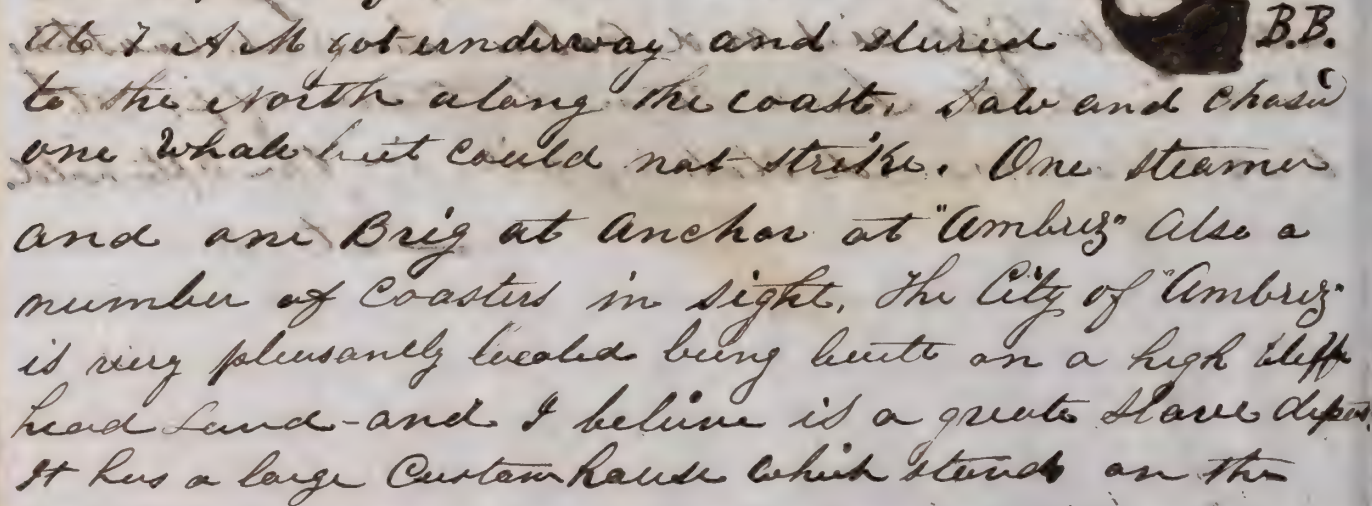 At 7 A M got underway and stured B.B.
to the North along the coast. Saw and chasd
one Whale but could not strike. One steamer
and one Brig at anchor at "Ambriz" Also a
number of Coasters in sight. The City of "Ambriz"
is very pleasantly located being built on a high bluff
head Land - and I believe is a great Slave depot.
It has a large Custom house which stands on the